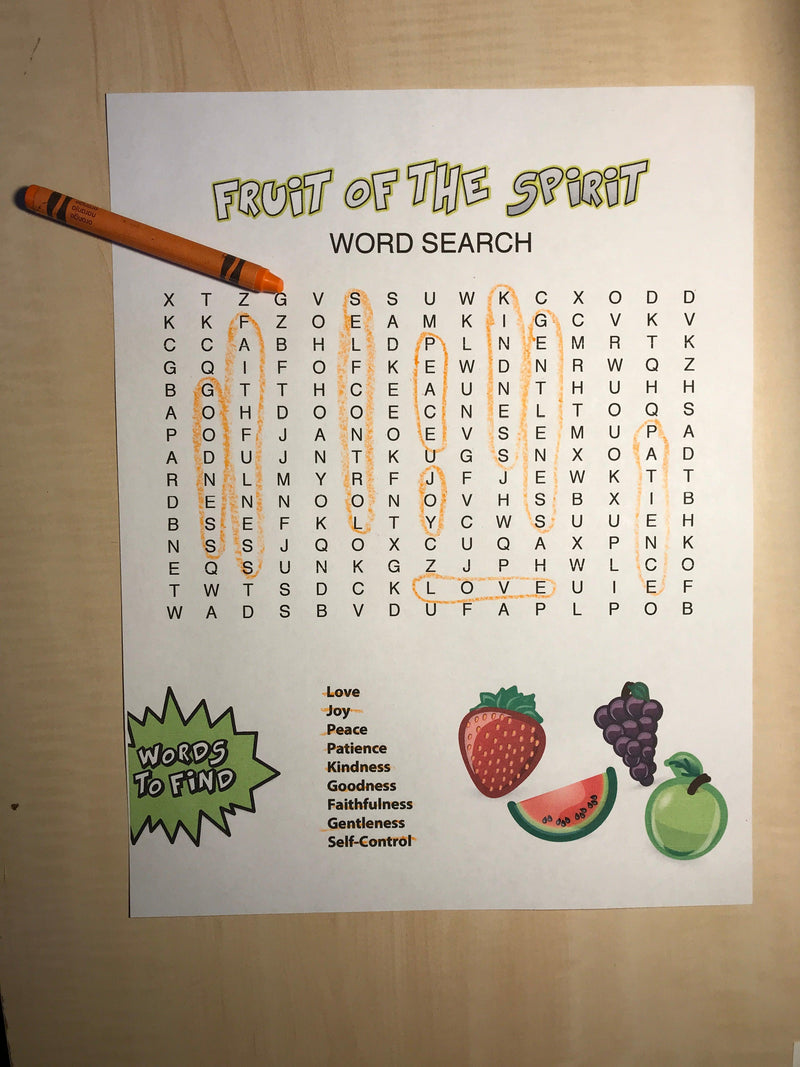 FRUIT OF THE SPIRIT
WORD SEARCH
orange
naranja
X T Z G V S S U W K C X O D D
K K F Z O E A M K I G C V K V
C C A B H L D P L N E M R T K
G Q I F O F K E W D N R W Q Z
B G T T H C E A U N T H U H H
A O H D O O E C N E L T O Q S
P O F J A N O E V S E M U P A
A D U J N T K U G S N X O A D
R N L M Y R F J F J E W K T T
D E N N O O N O V H S B X I B
B S E F K L T Y C W S U U E H
N S S J Q O X C U Q A X P N K
E Q S U N K G Z J P H W L C O
T W T S D C K L O V E U I E F
W A D S B V D U F A P L P O B
WORDS
TO FIND
Love
Joy
Peace
Patience
Kindness
Goodness
Faithfulness
Gentleness
Self-Control